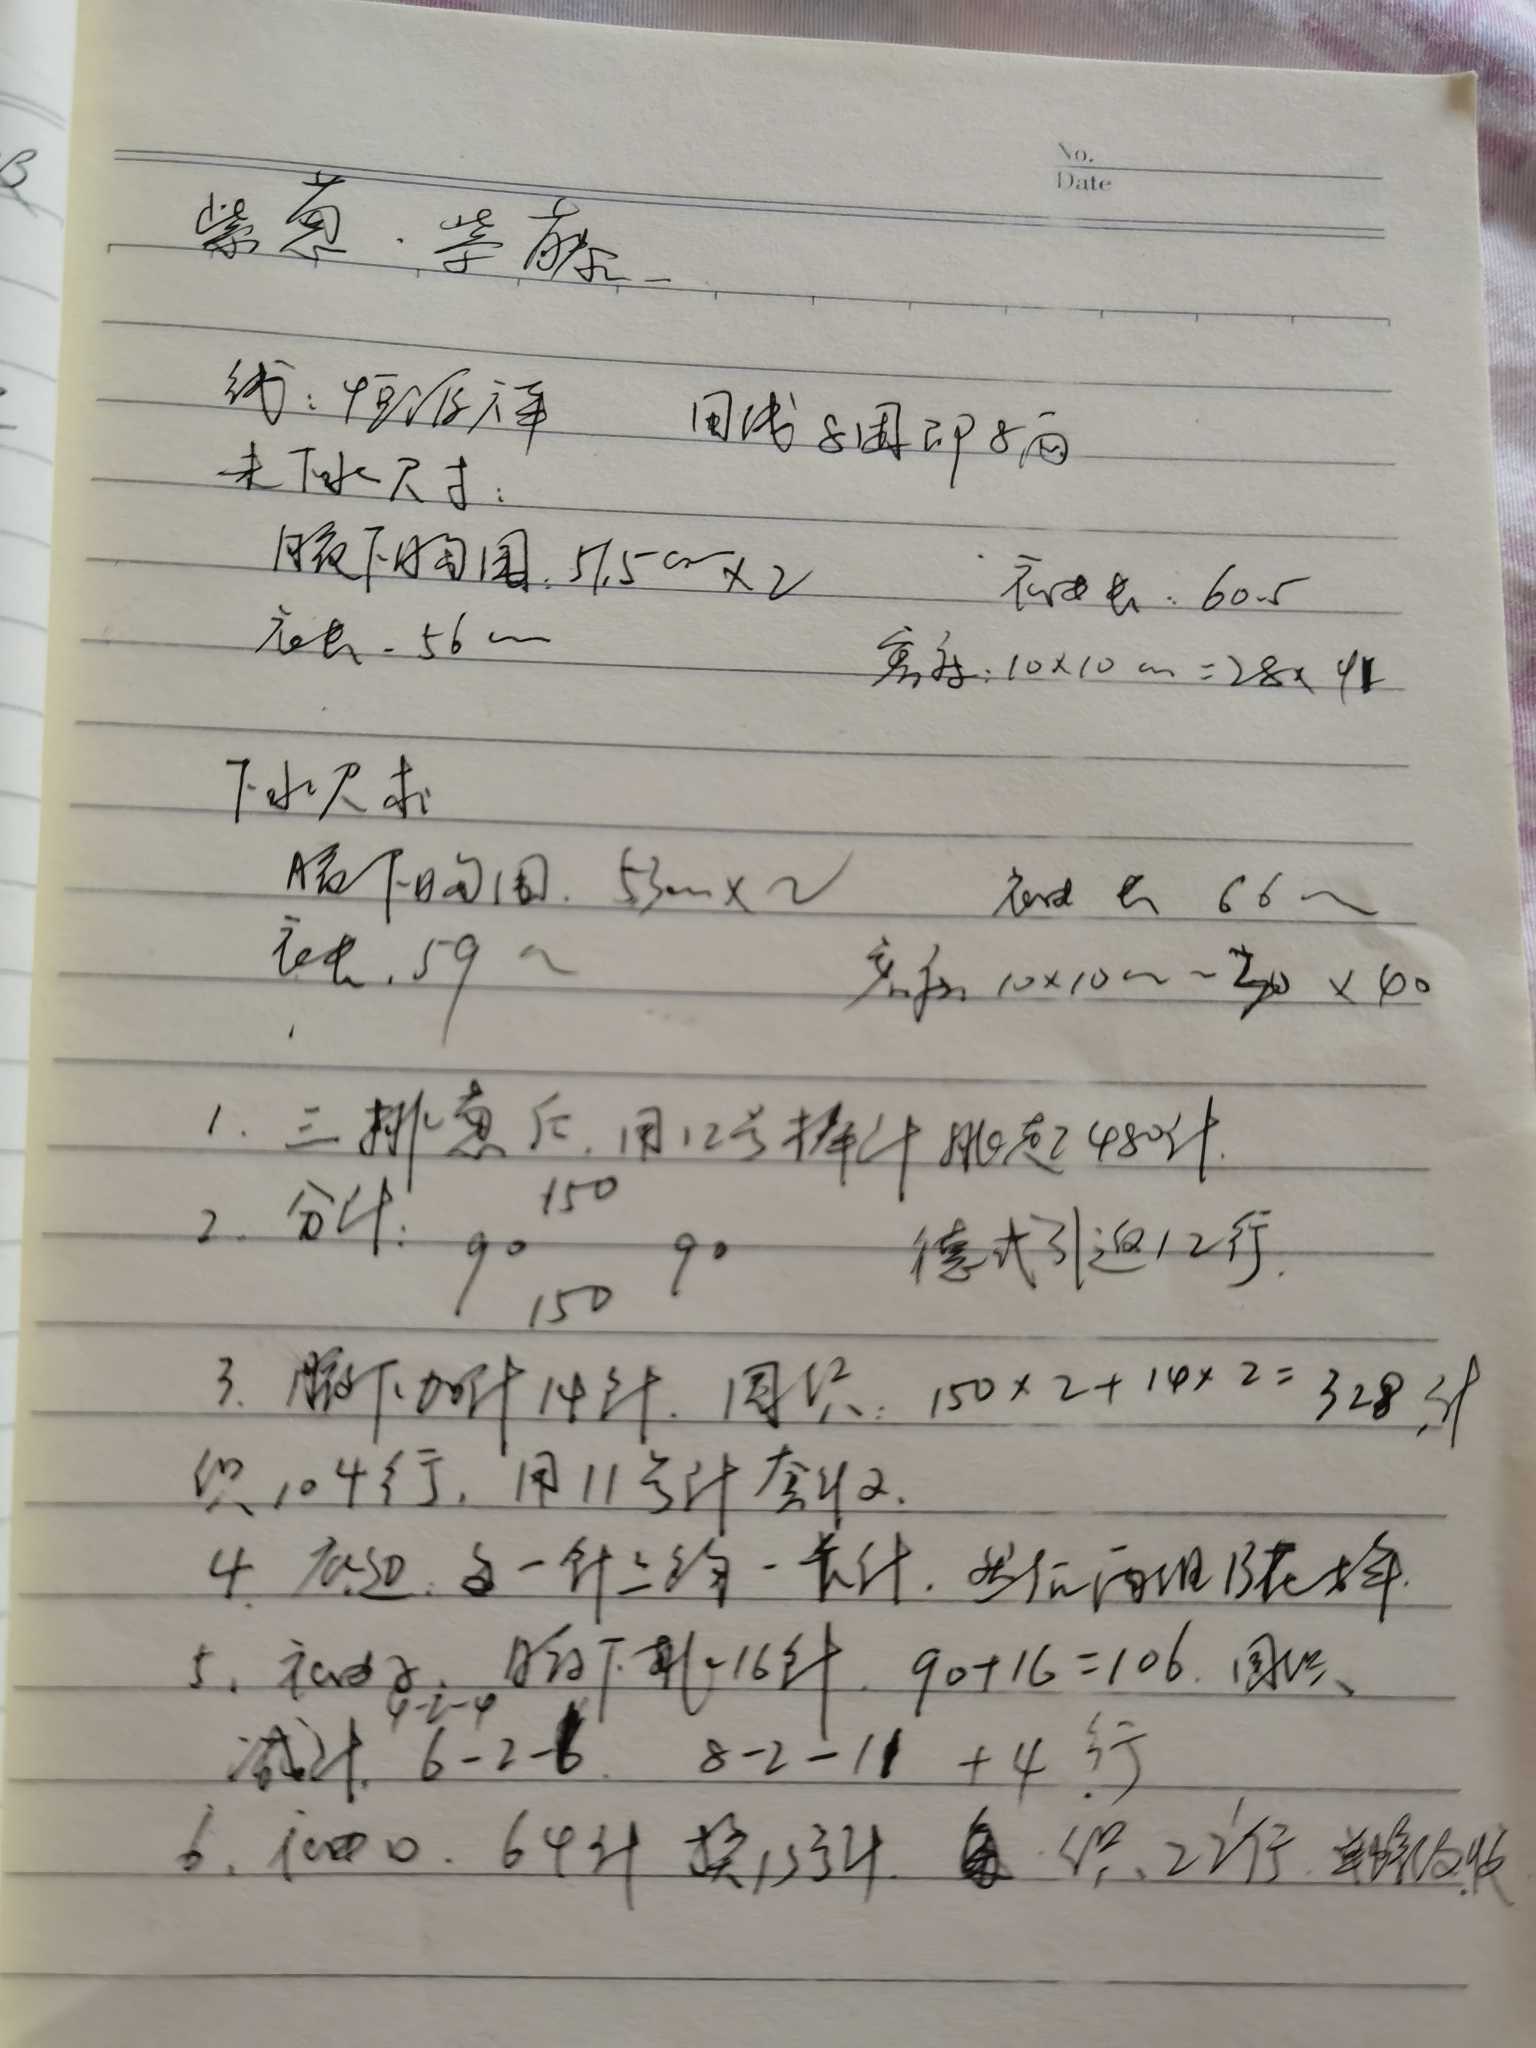 No.
Date
紫葱·紫藤
线:恒源祥 用线8团即8两
未下水尺寸:
腋下胸围:51.5cm×2 衣袖长:60.5
衣长:56cm 密度:10×10cm=28×41
下水尺寸
腋下胸围:53cm×2 袖长 66cm
衣长:59cm 密度:10×10cm=30×40
1. 三排葱后,用12号棒针挑起480针.
2. 分针: 150
90 90 德式引返12行.
150
3. 腋下加针14针. 圈织:150×2+14×2=328针
织104行.用11号针套收.
4. 底边:每一针上钩一长针.然后两组13花样.
5. 衣袖:腋下挑16针.90+16=106.圈织、
4-2-4
减针. 6-2-6 8-2-11 +4行
6. 袖口.64针换13号针. 织22行.缝收